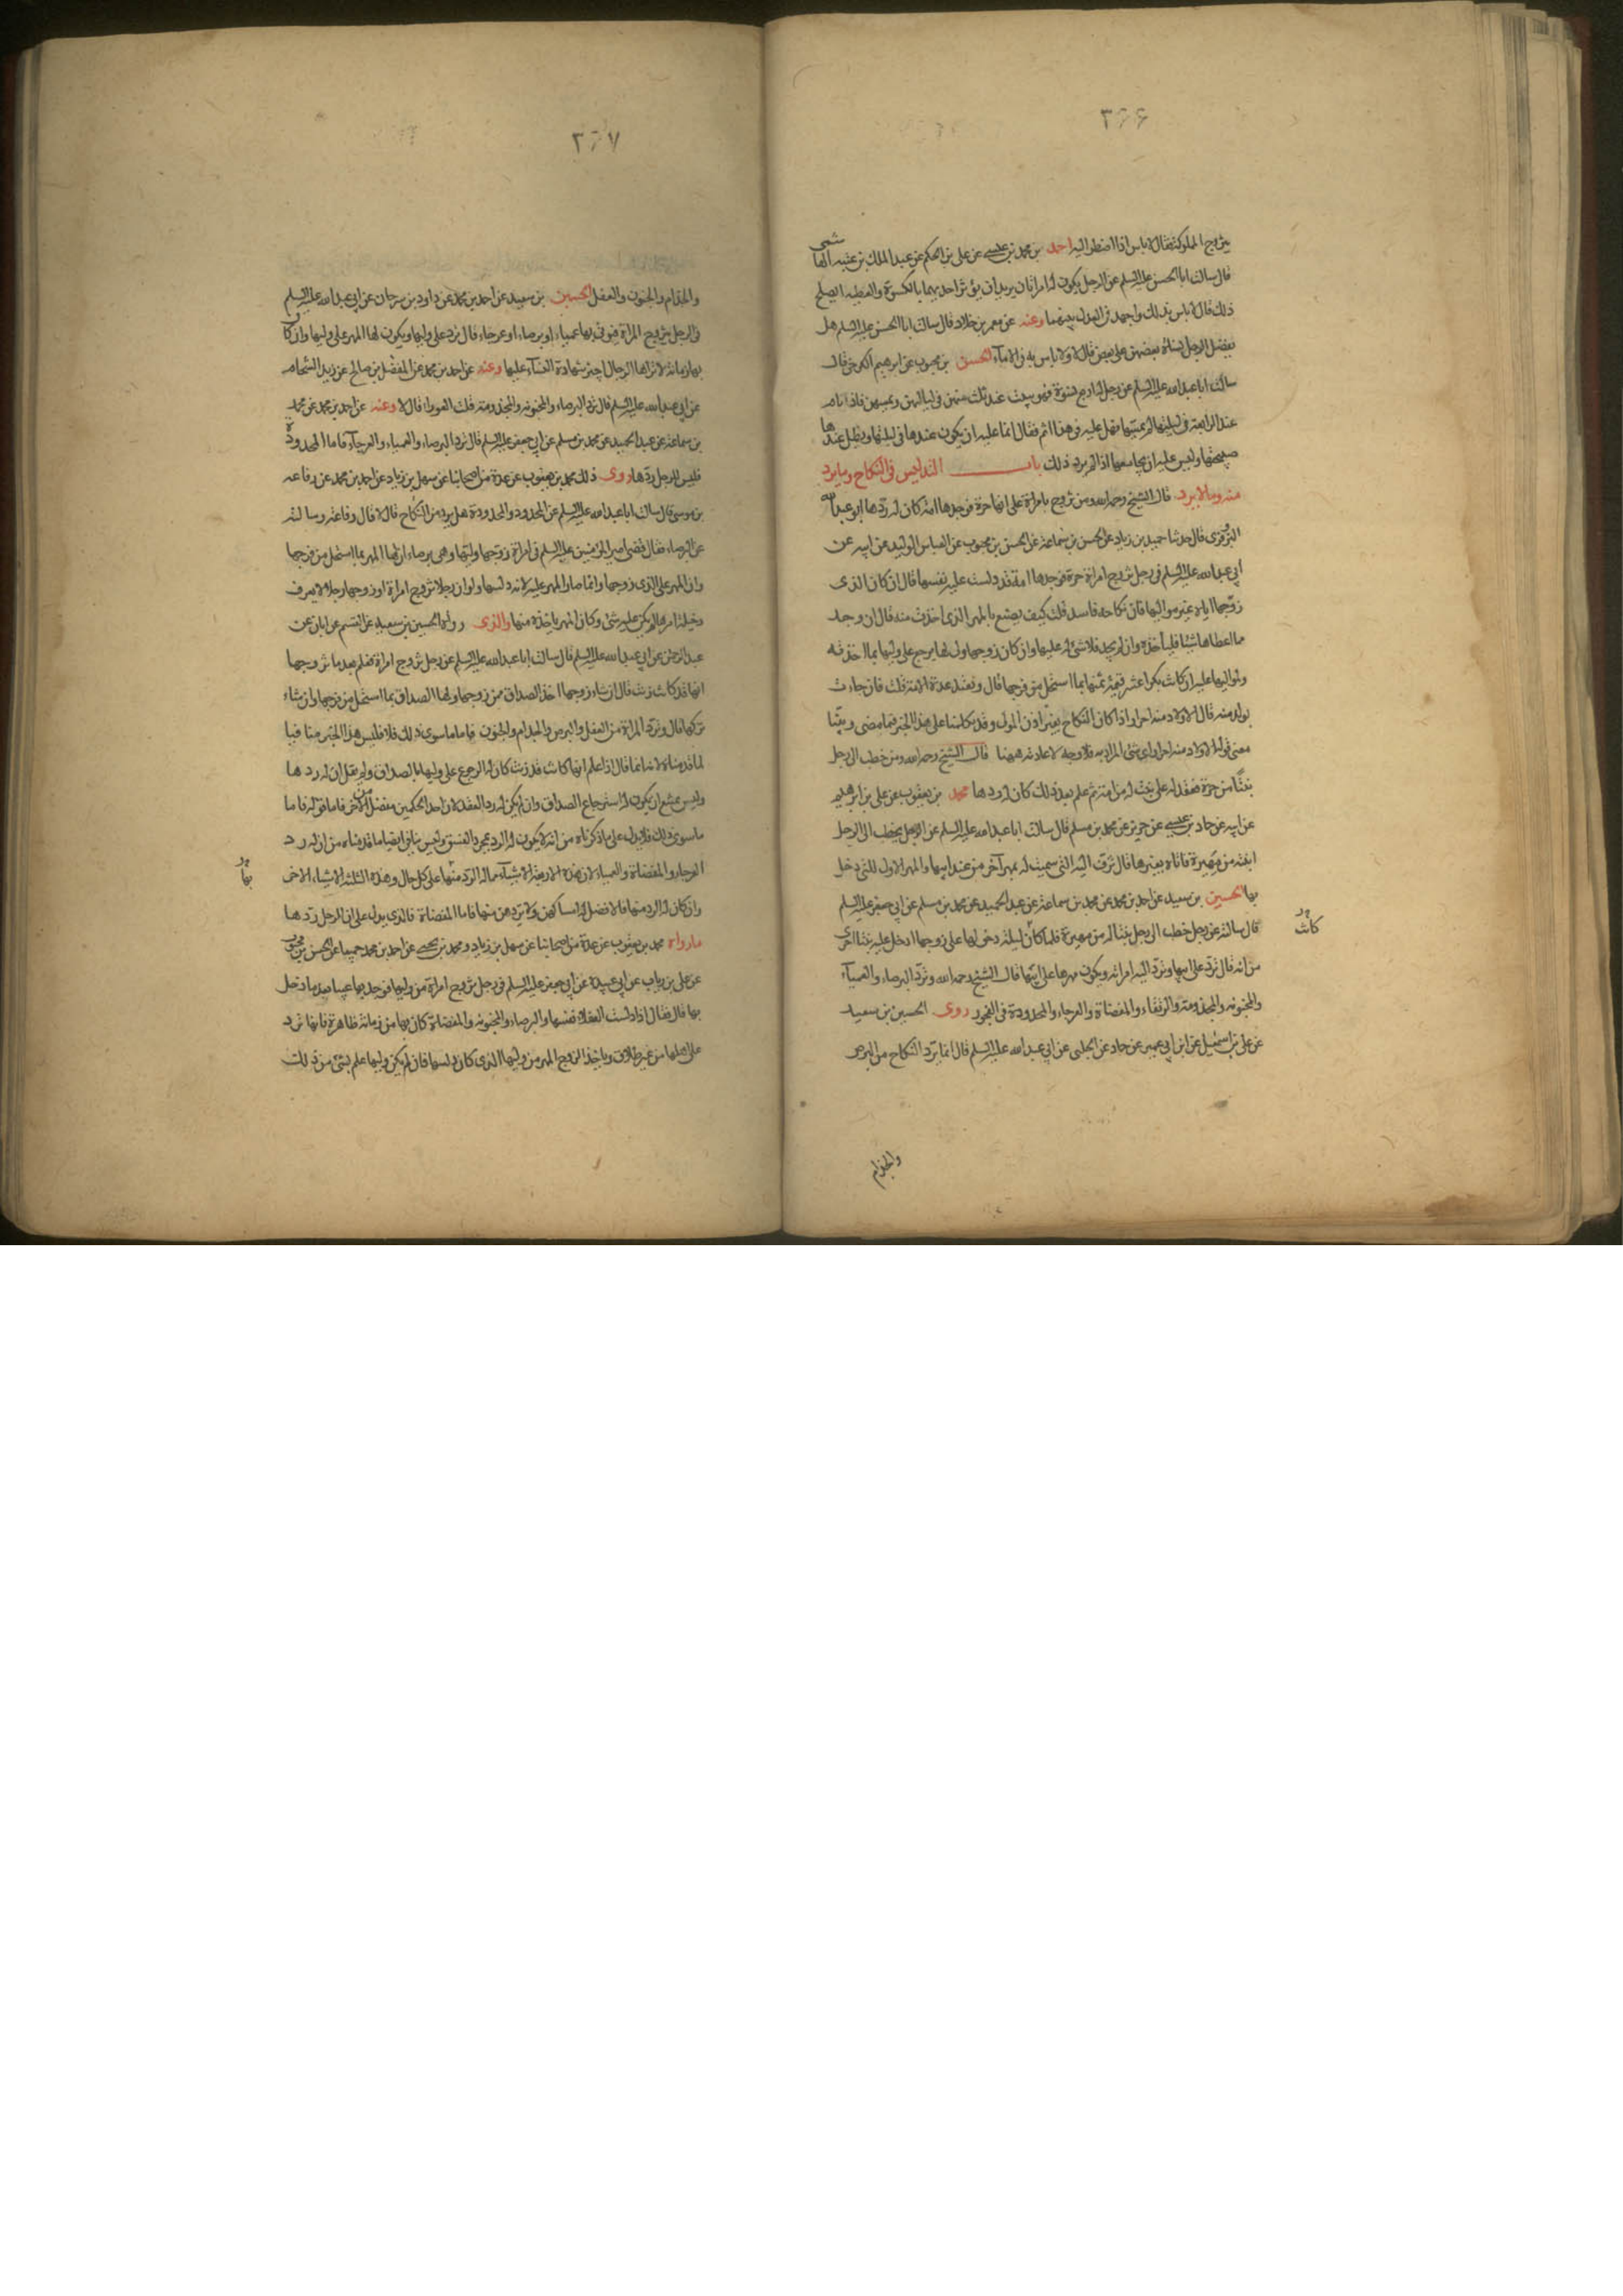 ٣٦٦
يتزوج المملوكة فقال لا باس اذا اضطر اليه احمد بن محمد بن عيسى عن علي بن الحكم عن عبد الملك بن عتبه الهاشمي
قال سالت ابا الحسن عليه السلم عن الرجل يكون له امراتان يريد ان يؤثر احديهما بالكسوة والعطيه ايصلح
ذلك قال لا باس بذلك واجهد في العدل بينهما وعنه عن معمر بن خلاد قال سالت ابا الحسن عليه السلم هل
يفضل الرجل نساءه بعضهن على بعض قال لا ولا باس به في الاماء الحسن بن محبوب عن ابرهيم الكرخي قال
سالت ابا عبد الله عليه السلم عن رجل له اربع نسوة فهو يبيت عند ثلث منهن في لياليهن ويمسهن فاذا نام
عند الرابعة في ليلتها لم يمسها فهل عليه في هذا اثم فقال انما عليه ان يكون عندها في ليلتها ويظل عندها
صبيحتها وليس عليه ان يجامعها اذا لم يرد ذلك باب التدليس في النكاح وما يرد
منه وما لا يرد قال الشيخ رحمه الله ومن تزوج بامراة على انها حرة فوجدها امة كان له ردها ابو عبد الله
البزوفري قال حدثنا حميد بن زياد عن الحسن بن سماعة عن الحسن بن محبوب عن العباس الوليد عن ابيه عن
ابي عبد الله عليه السلم في رجل تزوج امراة حرة فوجدها امة قد دلست عليه نفسها قال ان كان الذي
زوجها اياه غير مواليها فان نكاحه فاسد قلت كيف يصنع بالمهر الذي اخذت منه قال ان وجد
مما اعطاها شيئا فلياخذه وان لم يجد فلا شئ له عليها وان كان زوجها ولي لها يرجع على وليها بما اخذته
ولمواليها عليه ان كانت بكرا عشر قيمة ثمنها بما استحل من فرجها قال وتعتد عدة الامة قلت فان جاءت
بولد منه قال الاولاد منه احرار اذا كان النكاح بغير اذن المولى وقد تكلمنا على هذا الخبر فيما مضى وبينا
معنى قوله الاولاد منه احرار اي شئ المراد به فلا وجه لاعادته ههنا قال الشيخ رحمه الله ومن خطب الى رجل
بنتا من حرة فعقد له على بنت له من امة ثم علم بعد ذلك كان له ردها محمد بن يعقوب عن علي بن ابرهيم
عن ابيه عن حماد بن عيسى عن حريز عن محمد بن مسلم قال سالت ابا عبد الله عليه السلم عن الرجل يخطب الى الرجل
ابنته من مهيرة فاتاه بغيرها قال تزف اليه التي سميت له بمهر آخر من عند ابيها والمهر الاول للتي دخل
بها الحسين بن سعيد عن احمد بن محمد عن محمد بن سماعة عن عبد الحميد عن محمد بن مسلم عن ابي جعفر عليه السلم
قال سالته عن رجل خطب الى رجل بنتا له من مهيرة فلما كان ليلة دخولها على زوجها ادخل عليه بنتا اخرى
كانت
من امة قال ترد على ابيها وترد اليه امراته ويكون مهرها على ابيها قال الشيخ رحمه الله وترد البرصاء والعمياء
والمجنونه والمجذومة والرتقاء والمفضاة والعرجاء والمحدودة في الفجور روى الحسين بن سعيد
عن علي بن اسمعيل عن ابن ابي عمير عن حماد عن الحلبي عن ابي عبد الله عليه السلم قال انما يرد النكاح من البرص
والجذام
٣٦٧
والجذام والجنون والعفل الحسين بن سعيد عن احمد بن محمد عن داود بن سرحان عن ابي عبد الله عليه السلم
في الرجل يتزوج المراة فيؤتى بها عمياء او برصاء او عرجاء قال ترد على وليها ويكون لها المهر على وليها وان كان
بها زمانة لا تراها الرجال اجيز شهادة النساء عليها وعنه عن احمد بن محمد عن المفضل بن صالح عن زيد الشحام
عن ابي عبد الله عليه السلم قال ترد البرصاء والمجنونه والمجذومة قلت العوراء قال لا وعنه عن احمد بن محمد عن محمد
بن سماعة عن عبد الحميد عن محمد بن مسلم عن ابي جعفر عليه السلم قال ترد البرصاء والعمياء والعرجاء فاما المحدودة
فليس للرجل ردها روى ذلك محمد بن يعقوب عن عدة من اصحابنا عن سهل بن زياد عن احمد بن محمد عن رفاعه
بن موسى قال سالت ابا عبد الله عليه السلم عن المحدود والمحدودة هل يرد من النكاح قال لا قال رفاعة وسالته
عن البرصاء فقال قضى امير المؤمنين عليه السلم في امراة زوجها وليها وهي برصاء ان لها المهر بما استحل من فرجها
وان المهر على الذي زوجها وانما صار المهر عليه لانه دلسها ولو ان رجلا تزوج امراة او زوجها رجلا لا يعرف
دخيلة امرها لم يكن عليه شئ وكان المهر ياخذه منها والذي رواه الحسين بن سعيد عن القسم عن ابان عن
عبد الرحمن عن ابي عبد الله عليه السلم قال سالت ابا عبد الله عليه السلم عن رجل تزوج امراة فعلم بعد ما تزوجها
انها قد كانت زنت قال ان شاء زوجها اخذ الصداق ممن زوجها ولها الصداق بما استحل من فرجها وان شاء
تركها قال وترد المراة من العفل والبرص والجذام والجنون فاما ما سوى ذلك فلا فليس هذا الخبر منافيا
لما قدمناه لانه انما قال اذا علم انها كانت قد زنت كان له الرجوع على وليها بالصداق ولم يقل ان له ردها
وليس يمتنع ان يكون له استرجاع الصداق وان لم يكن له رد العقد لان احد الحكمين منفصل من الآخر فاما قوله فاما
ما سوى ذلك فلا يدل على ما ذكرناه من انه لا يكون له الرد بمجرد الفسق وليس ينافي ايضا ما قدمناه من ان له رد
العرجاء والمفضاة والعمياء لان هذه الاربعة الاشياء مما له الرد منها على كل حال وهذه الثلثة الاشياء الاخر
وان كان له الرد منها فالافضل له امساكهن ولا يردهن منها فاما المفضاة فالذي يدل على ان للرجل ردها
ما رواه محمد بن يعقوب عن عدة من اصحابنا عن سهل بن زياد ومحمد بن يحيى عن احمد بن محمد جميعا عن الحسن بن محبوب
عن علي بن رباب عن ابي عبيدة عن ابي جعفر عليه السلم في رجل تزوج امراة من وليها فوجد بها عيبا بعد ما دخل
بها قال فقال اذا دلست العفلاء نفسها والبرصاء والمجنونه والمفضاة كان بها من زمانة ظاهرة فانها ترد
على اهلها من غير طلاق وياخذ الزوج المهر من وليها الذي كان دلسها فان لم يكن وليها علم بشئ من ذلك